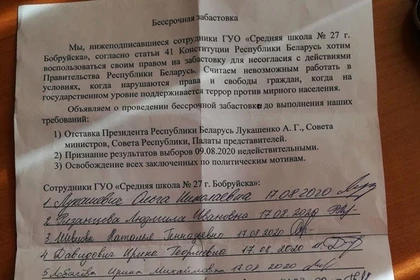 Бессрочная забастовка
Мы, нижеподписавшиеся сотрудники ГУО «Средняя школа № 27 г.
Бобруйска», согласно статьи 41 Конституции Республики Беларусь хотим
воспользоваться своим правом на забастовку для несогласия с действиями
Правительства Республики Беларусь. Считаем невозможным работать в
условиях, когда нарушаются права и свободы граждан, когда на
государственном уровне поддерживается террор против мирного населения.
Объявляем о проведении бессрочной забастовки до выполнения наших
требований:
1) Отставка Президента Республики Беларусь Лукашенко А. Г., Совета
министров, Совета Республики, Палаты представителей.
2) Признание результатов выборов 09.08.2020 недействительными.
3) Освобождение всех заключенных по политическим мотивам.
Сотрудники ГУО «Средняя школа № 27 г. Бобруйска»:
1. Лукашевич Ольга Николаевна 17.08.2020
2. Рязанцева Людмила Ивановна 17.08.2020
3. Шевцова Наталья Геннадьевна 17.08.2020
4. Давидович Ирина Георгиевна 17.08.2020
5. Ирина Михайловна 17.08.2020